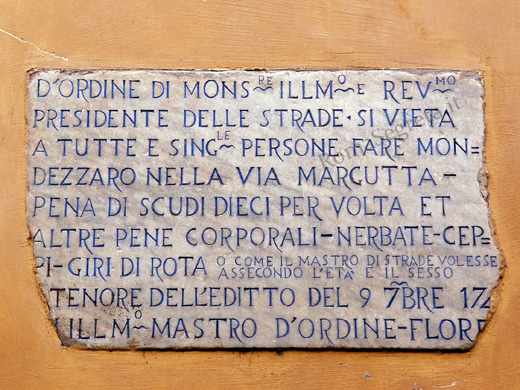 D'ORDINE DI MONS^RE ILLM^O E REV^MO
PRESIDENTE DELLE STRADE·SI VIETA
A TUTTE E SING^LE PERSONE FARE MON=
DEZZARO NELLA VIA MARGUTTA-
PENA DI SCUDI DIECI PER VOLTA ET
ALTRE PENE CORPORALI-NERBATE-CEP=
PI-GIRI DI ROTA O COME IL MASTRO DI STRADE VOLESSE
ASSECONDO L'ETÀ E IL SESSO
TENORE DELL'EDITTO DEL 9 7MBRE 17
ILLM^O MASTRO D'ORDINE-FLORE